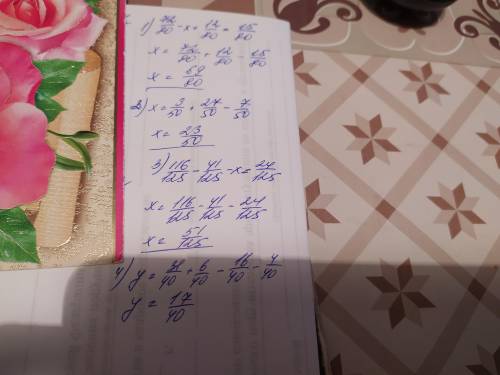 1) 72/80 - x + 12/80 = 15/80
x = 72/80 + 12/80 - 15/80
x = 69/80
2) x = 3/50 + 27/50 - 7/50
x = 23/50
3) 116/125 - 41/125 - x = 24/125
x = 116/125 - 41/125 - 24/125
x = 51/125
4) y = 31/40 + 6/40 - 16/40 - 4/40
y = 17/40